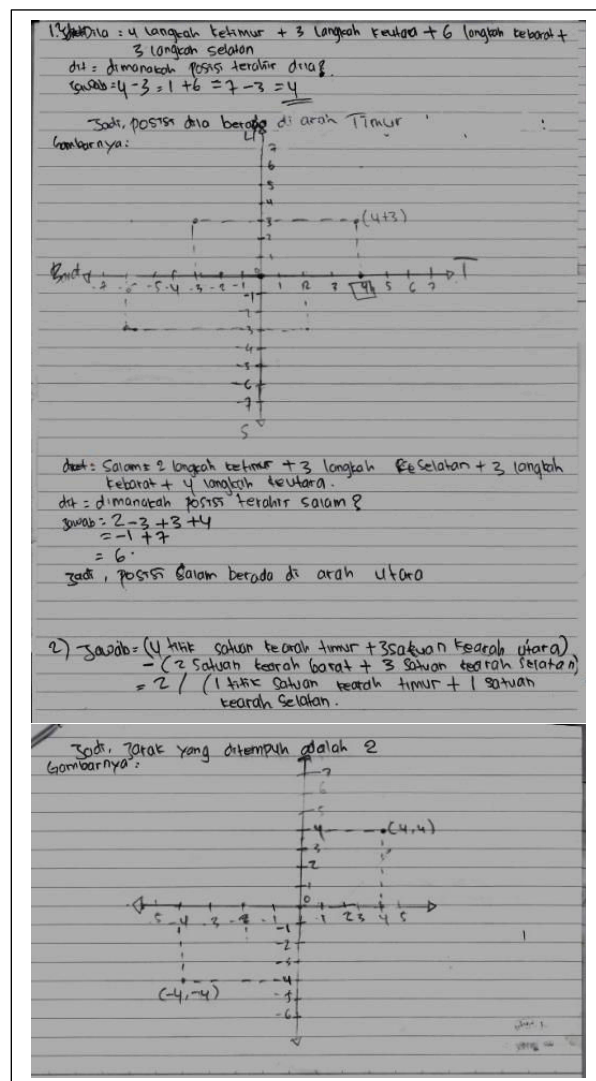 1. Dila : 4 langkah ketimur + 3 langkah keutara + 6 langkah kebarat +
3 langkah selatan
dit = dimanakah posisi terahir dila?
Jawab = 4 - 3 = 1 + 6 = 7 - 3 = 4
Jadi, posisi dila berada di arah Timur
Gambarnya:
7
6
5
4
3
2
1
(4+3)
T
-5 -4 -3 -2 -1 1 2 3 4 5 6 7
-1
-3
-4
-5
-6
-7
S
Salam = 2 langkah ketimur + 3 langkah keselatan + 3 langkah
kebarat + 4 langkah keutara.
dit = dimanakah posisi terahir salam?
Jawab = 2 - 3 + 3 + 4
= -1 + 7
= 6.
Jadi, posisi Salam berada di arah utara
2) Jawab = (4 titik satuan kearah timur + 3 satuan kearah utara)
- (2 satuan kearah barat + 3 satuan kearah selatan)
= 2 / (1 titik satuan kearah timur + 1 satuan
kearah selatan.
Jadi, Jarak yang ditempuh adalah 2
Gambarnya:
7
6
5
4
(4,4)
3
2
1
0
-5 -4 -3 -2 -1 1 2 3 4 5
-1
-2
-3
-4
(-4,-4)
-5
-6